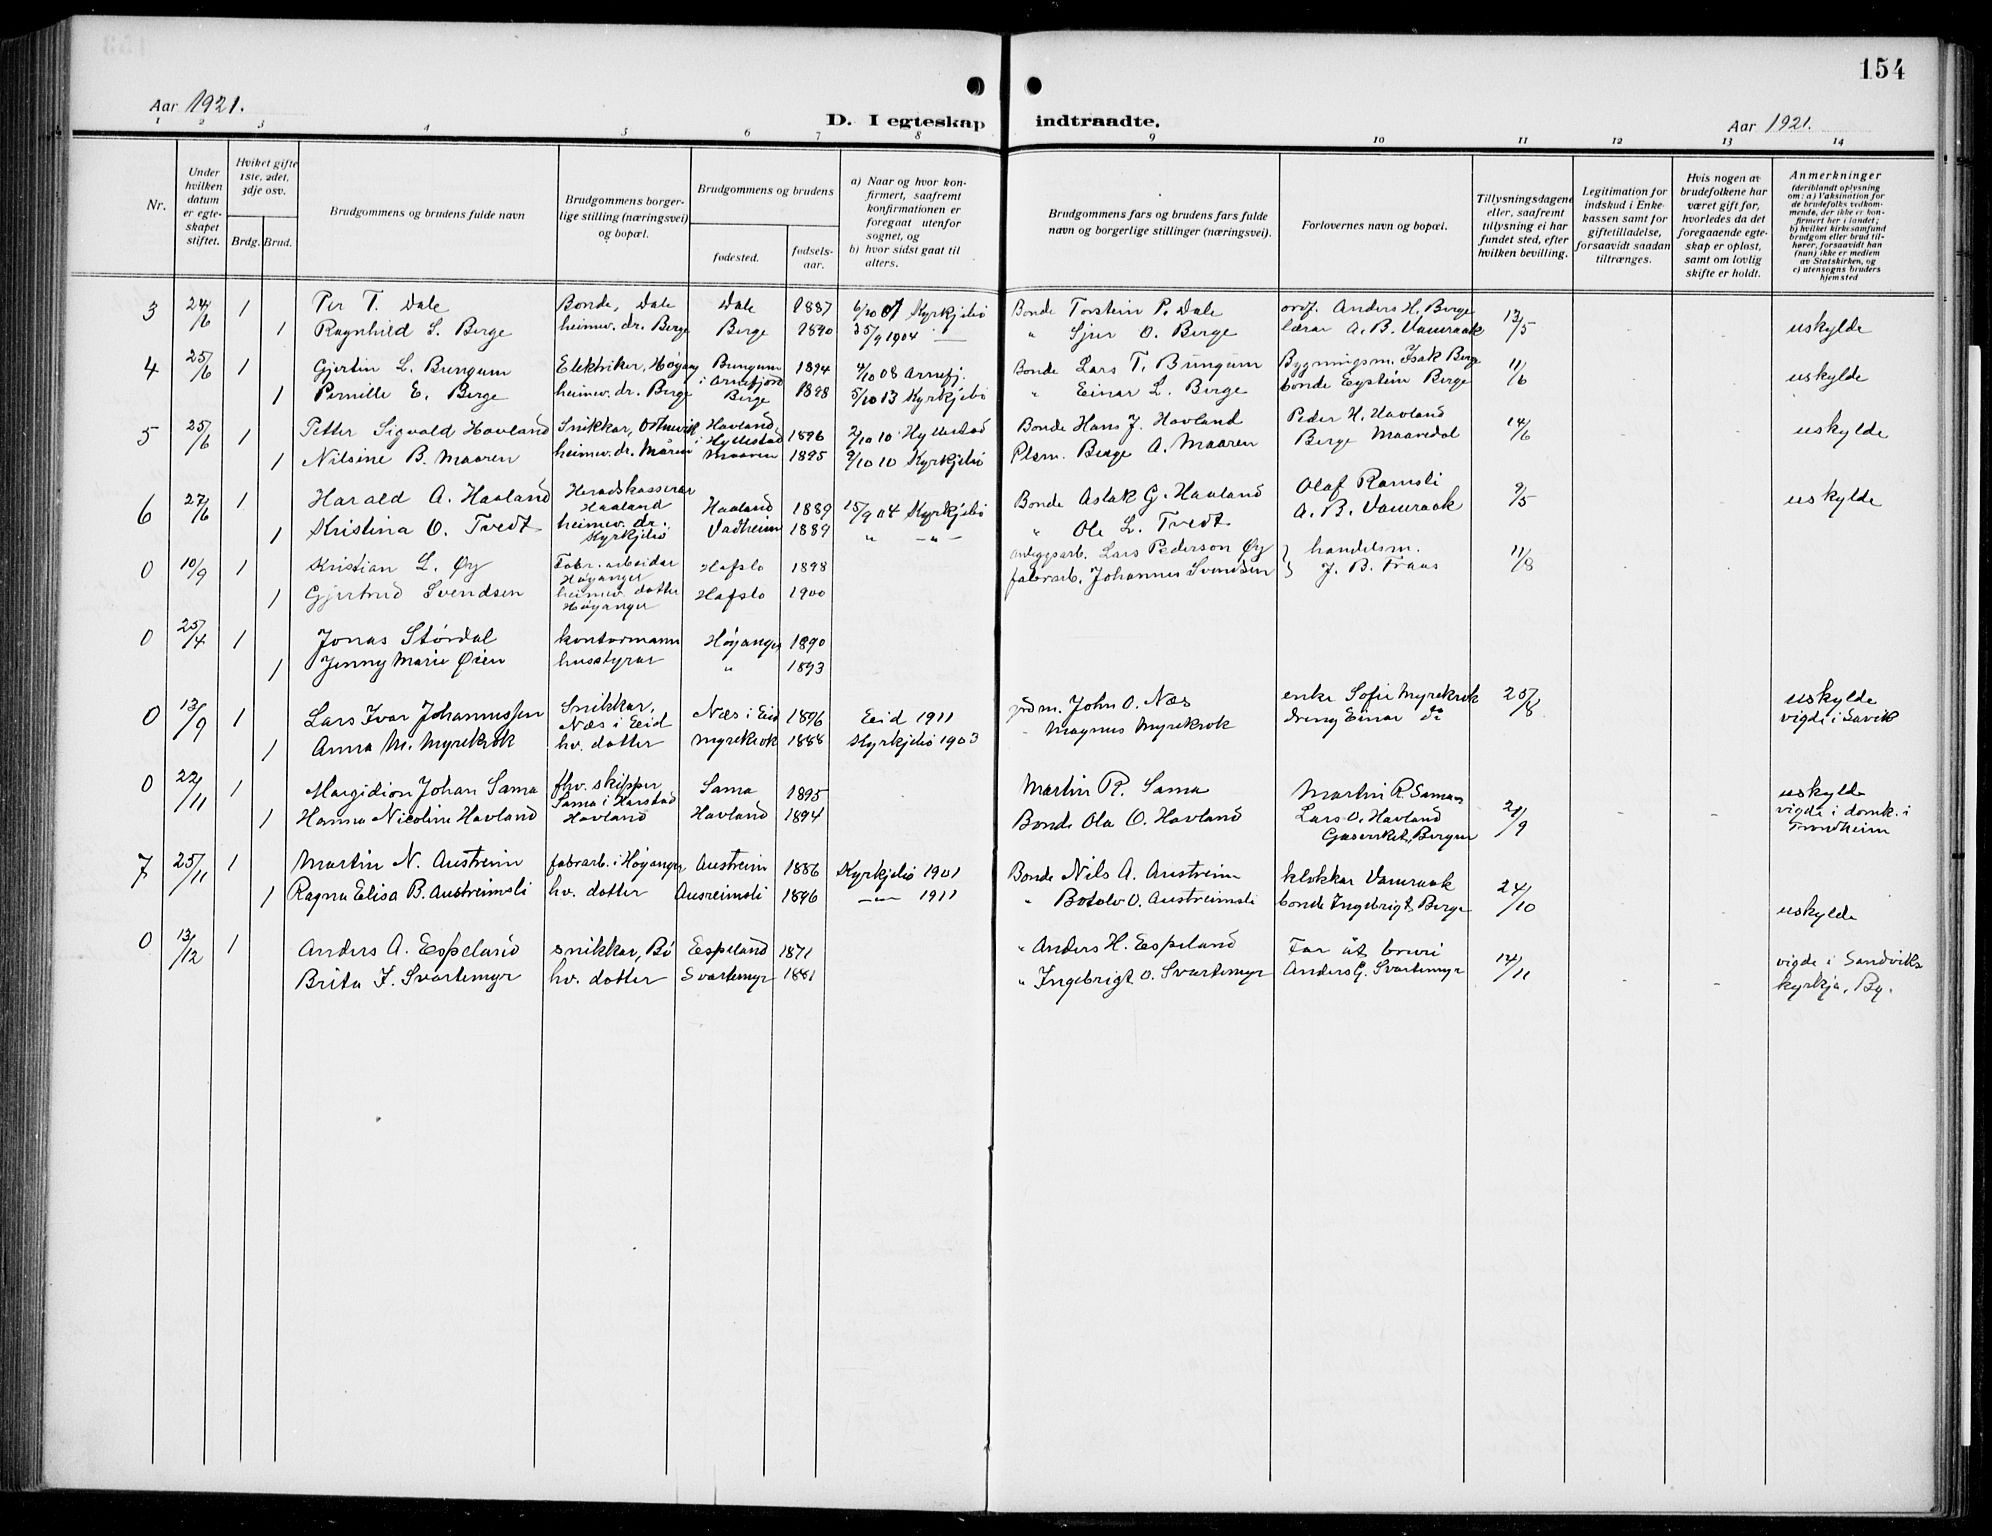 154
Aar 1921.
D. I egteskap indtraadte.
Aar 1921.
1 2 3 4 5 6 7 8 9 10 11 12 13 14
Nr.
Under hvilken datum er egteskapet stiftet.
Hvilket gifte 1ste, 2det, 3dje osv.
Brdg. Brud.
Brudgommens og brudens fulde navn
Brudgommens borgerlige stilling (næringsvei) og bopæl.
Brudgommens og brudens
fødested.
fødselsaar.
a) Naar og hvor konfirmert, saafremt konfirmationen er foregaat utenfor sognet, og
b) hvor sidst gaat til alters.
Brudgommens fars og brudens fars fulde navn og borgerlige stillinger (næringsvei).
Forlovernes navn og bopæl.
Tillysningsdagene eller, saafremt tillysning ei har fundet sted, efter hvilken bevilling.
Legitimation for indskud i Enkekassen samt for giftetilladelse, forsaavidt saadan tiltrænges.
Hvis nogen av brudefolkene har været gift før, hvorledes da det foregaaende egteskap er opløst, samt om lovlig skifte er holdt.
Anmerkninger (deriblandt oplysning om: a) Vaksination for de brudefolks vedkommende, der ikke er konfirmert her i landet; b) hvilket kirkesamfund brudgom eller brud tilhører, forsaavidt han (hun) ikke er medlem av Statskirken, og c) utensogns bruders hjemsted
3 24/6 1 Per T. Dale Bonde, Dale Dale 1887 6/10 01 Kyrkjebø Bonde Torstein P. Dale ordf. Anders H. Berge 13/5
1 Ragnhild S. Berge heimev. dr. Berge Berge 1890 25/9 1904 — " Sjur O. Berge lærar A. B. Vamraak uskylde
4 25/6 1 Gjertin L. Bungum Elektriker, Høyang Bungum i Arnefjord 1894 4/10 08 Arnefj. Bonde Lars T. Bungum Bygningsm. Isak Berge 11/6
1 Pernille E. Berge heimev. dr. Berge Berge 1898 5/10 13 Kyrkjebø " Einar L. Berge bonde Eystein Berge uskylde
5 25/6 1 Petter Sigvald Havland Snikkar, Ortnevik Havland i Hyllestad 1896 2/10 10 Hyllestad Bonde Hans J. Havland Peder H. Havland 14/6
1 Nilsine B. Maaren heimev. dr. Måren Maaren 1895 9/10 10 Kyrkjebø Plsm. Berge A. Maaren Berge Maaredal uskylde
6 27/6 1 Harald A. Haaland Heradskasserar Haaland Haaland 1889 15/9 04 Kyrkjebø Bonde Aslak G. Haaland Olaf Ramsli 9/5
1 Kristina O. Tvedt heimev. dr. Kyrkjebø Vadheim 1889 " — " — " Ole L. Tvedt A. B. Vamraak uskylde
0 10/9 1 Kristian L. Øy Fabr. arbeidar Høyanger Hafslo 1898 anleggsarb. Lars Pederson Øy } handelsm. 11/8
1 Gjertrud Svendsen heimev. dotter Høyanger Hafslo 1900 fabrarb. Johannes Svendsen } J. B. Traas
0 25/4 1 Jonas Størdal kontormann Høyanger 1890
1 Jenny Marie Øien husstyrar " 1893
0 13/9 1 Lars Ivar Johannessen Snikkar, Næs i Eid Næs i Eid 1896 Eid 1911 grdm. John O. Næs enke Sofie Myrekrok 25/8 uskylde
1 Anna M. Myrekrok hv. dotter Myrekrok 1888 Kyrkjebø 1903 " Magnus Myrekrok dreng Einar do vigde i Lavik
0 22/11 1 Margidion Johan Sama fhv. skipper Sama i Harstad Sama 1895 Martin P. Sama Martin R. Sama uskylde
1 Hanna Nicoline Havland Havland Havland 1894 Bonde Ola O. Havland Lars O. Havland Gasverket, Bergen 21/9 vigde i domk. i Trondheim
7 25/11 1 Martin N. Austreim fabrarb. i Høyanger Austreim 1886 Kyrkjebø 1901 Bonde Nils A. Austreim klokkar Vamraak
1 Ragna Elisa B. Austreimsli hv. dotter Ausreimsli 1896 — " — 1911 " Botolv O. Austreimsli bonde Ingebrigt Berge 24/10 uskylde
0 13/12 1 Anders A. Espeland snikkar, Bø Espeland 1871 " Anders H. Espeland Far åt bruri
Brita I. Svartemyr hv. dotter Svartemyr 1881 " Ingebrigt O. Svartemyr Anders G. Svartemyr 12/11 vigde i Sandviks kyrkja, Bg.